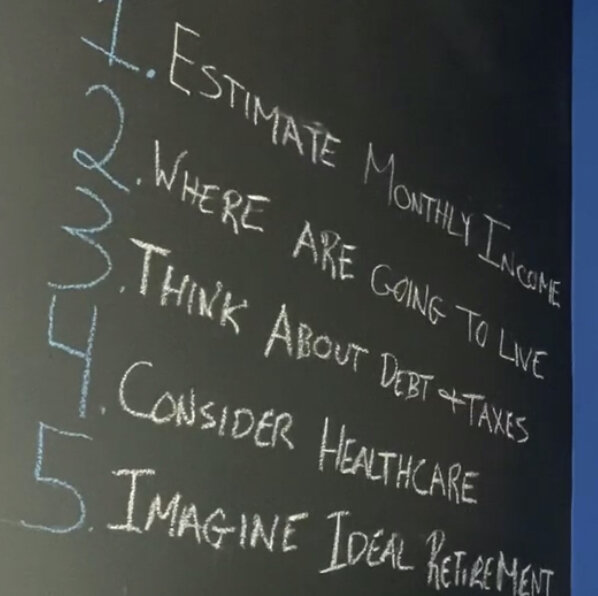 1. ESTIMATE MONTHLY INCOME
2. WHERE ARE GOING TO LIVE
3. THINK ABOUT DEBT & TAXES
4. CONSIDER HEALTHCARE
5. IMAGINE IDEAL RETIREMENT